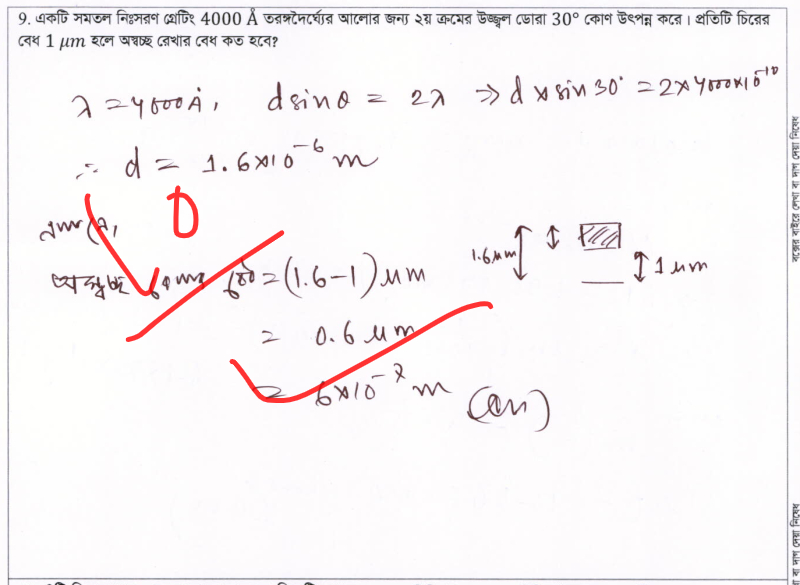 9. একটি সমতল নিঃসরণ গ্রেটিং 4000 Å তরঙ্গদৈর্ঘ্যের আলোর জন্য ২য় ক্রমের উজ্জ্বল ডোরা 30° কোণ উৎপন্ন করে। প্রতিটি চিরের
বেধ 1 μm হলে অস্বচ্ছ রেখার বেধ কত হবে?
λ = 4000Å, d sinθ = 2λ ⇒ d × sin 30° = 2×4000×10⁻¹⁰
∴ d = 1.6×10⁻⁶ m
0
অস্বচ্ছ = (1.6-1) μm
= 0.6 μm
= 6×10⁻⁷ m (Ans)
1.6μm
1 μm
বক্সের বাইরে লেখা বা দাগ দেয়া নিষেধ
বা দাগ দেয়া নিষেধ